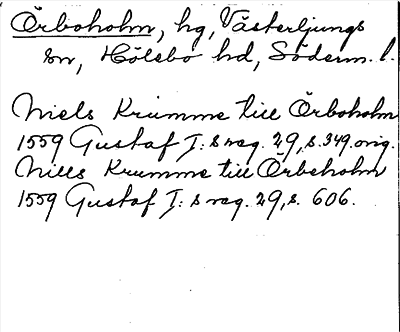 Örboholm, hg, Västerljungs
sn, Hölebo hd, Söderm. l.
Niels Krumme till Örboholm
1559 Gustaf I: s reg. 29, s. 349. orig.
Nills Krumme till Örboholm
1559 Gustaf I: s reg. 29, s. 606.